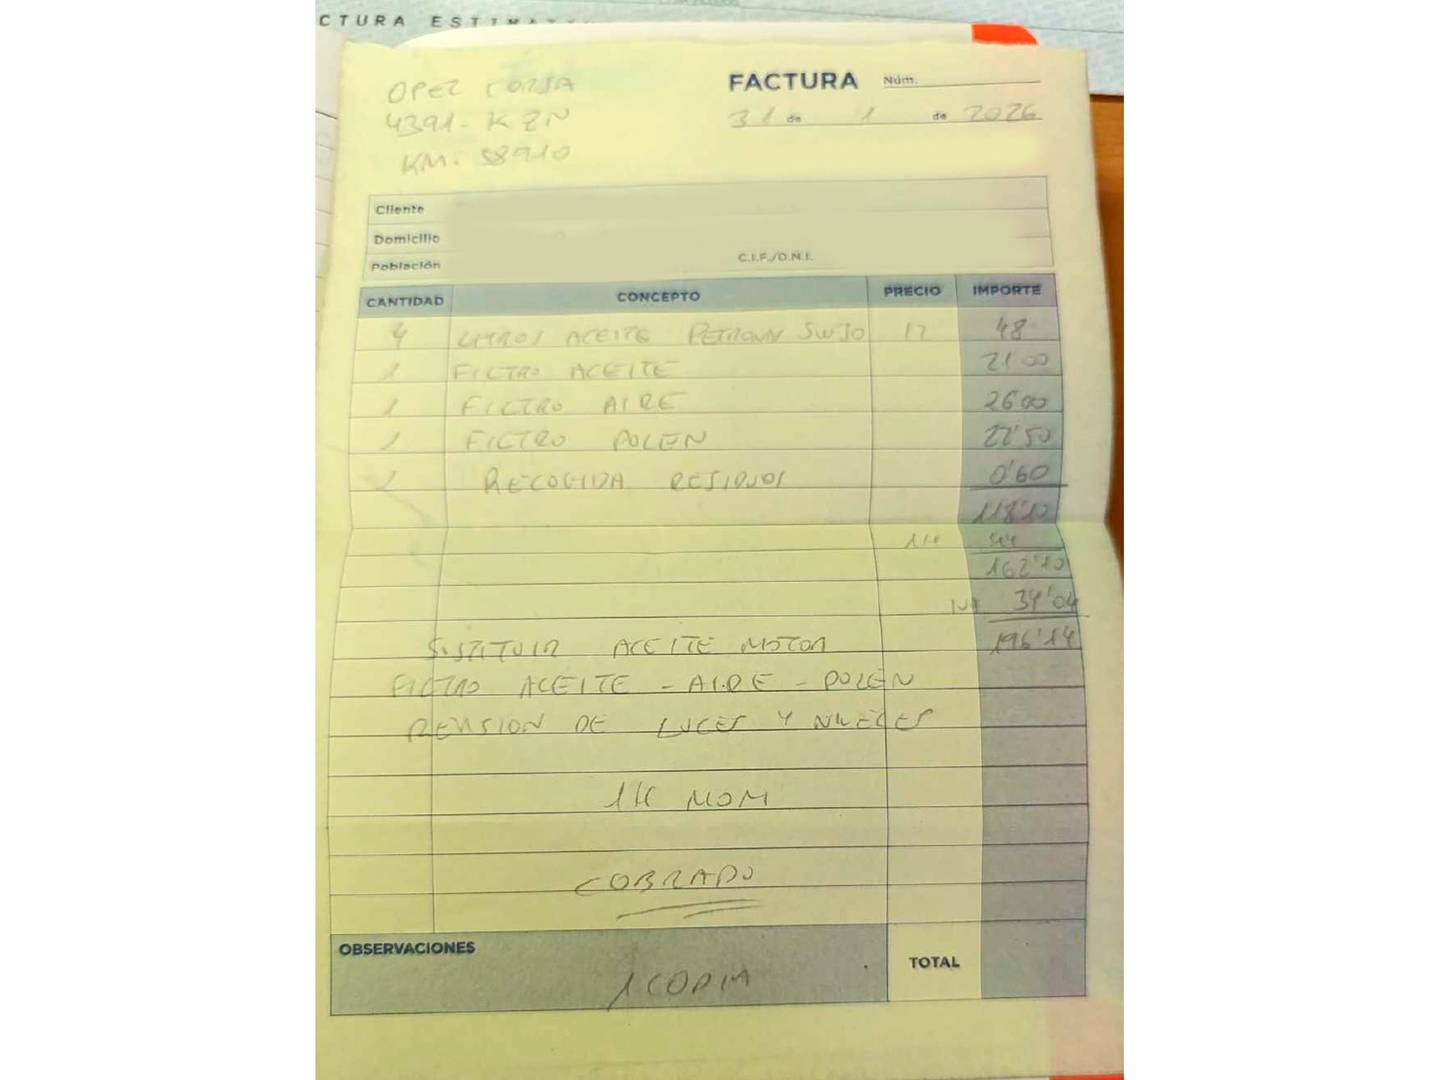 CTURA ESTIMA
OPEL CORSA
4391-KZN
KM. 58910
FACTURA Núm.
31 de 1 de 2026
Cliente
Domicilio
Población C.I.F./D.N.I.
CANTIDAD CONCEPTO PRECIO IMPORTE
4 LITROS ACEITE PETRONN 5W30 12 48
1 FILTRO ACEITE 21'00
1 FILTRO AIRE 26'00
1 FILTRO POLEN 22'50
1 RECOGIDA RESIDUOS 0'60
118'10
1H 44
162'10
IVA 34'04
196'14
SUSTITUIR ACEITE MOTOR
FILTRO ACEITE - AIRE - POLEN
REVISION DE LUCES Y NIVELES
1H MOM
COBRADO
OBSERVACIONES
1 COPIA
TOTAL